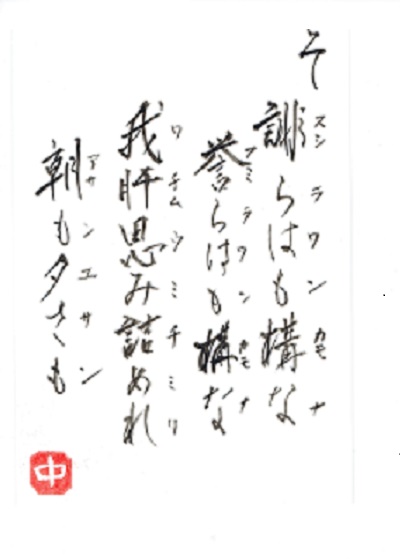 そ
スシラワンカモナ
謗らはも構な
フミラワンカモナ
誉らはも構な
ワチムウミチミリ
我肝思み詰めれ
アサンユサン
朝も夕さも
中